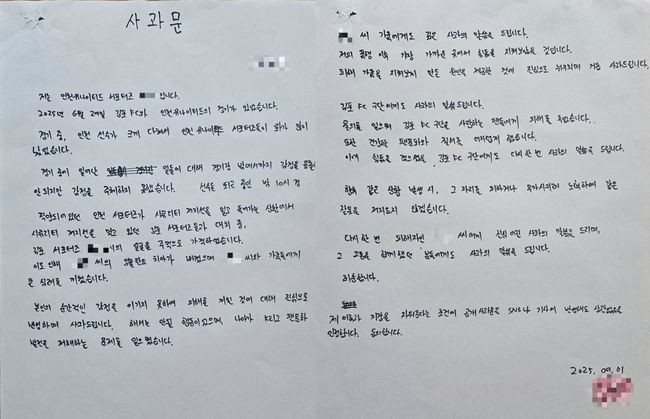 사과문
저는 인천유나이티드 서포터즈 입니다.
2025년 6월 29일 김포 FC와 인천유나이티드의 경기가 있었습니다.
경기 중, 인천 선수가 크게 다쳐서 인천 유나이티드 서포터즈들이 화가 많이
있었습니다.
경기 중에 일어난 일들에 대해 경기장 밖에서까지 감정을 표출
안되지만 감정을 억제하지 못했습니다. 선수들 퇴근 중인 밤 10시 경
인천 서포터즈가 시큐리티 저지선을 밀고 들어가는 상황에서
시큐리티 저지선을 맞고 있던 김포 서포터즈들과 대치 중,
김포 서포터즈 의 얼굴을 주먹으로 가격하였습니다.
이로 인해 씨의 치아가 빠졌으며 씨와 가족들에게
큰 심려를 끼쳤습니다.
본인의 순간적인 감정을 이기지 못하여 피해를 끼친 것에 대해 진심으로
반성하며 사과드립니다. 해서는 안될 행동이었으며, 나아가 K리그 팬문화
발전을 저해하는 문제를 일으켰습니다.
씨 가족에게도 깊은 사과의 말씀을 드립니다.
저의 폭행 이후 가장 가까운 곳에서 힘듦을 지켜보았을 것입니다.
피해 가족을 지켜보게 만든 원인을 제공한 것에 진심으로 뉘우치며 거듭 사과드립니다.
김포 FC 구단에게도 사과의 말씀드립니다.
물의를 일으켜 김포 FC 구단을 사랑하는 팬들에게 피해를 주었습니다.
또한 건강한 팬문화와 질서를 어지럽게 했습니다.
이에 힘듦을 겪으셨을 김포 FC 구단에게도 다시 한 번 사과의 말씀을 드립니다.
향후 같은 상황 발생 시, 그 자리를 피하거나 노력하여 같은
잘못을 저지르지 않겠습니다.
다시 한 번 피해자인 씨에게 진심어린 사과의 말씀을 드리며,
그 고통을 함께했던 분들에게도 사과의 말씀을 드립니다.
죄송합니다.
제 이름과 지장을 지워준다는 조건에 공개사과문을 SNS나 기사에 반영해도 상관없음을
인정합니다. 동의합니다.
2025. 09. 01